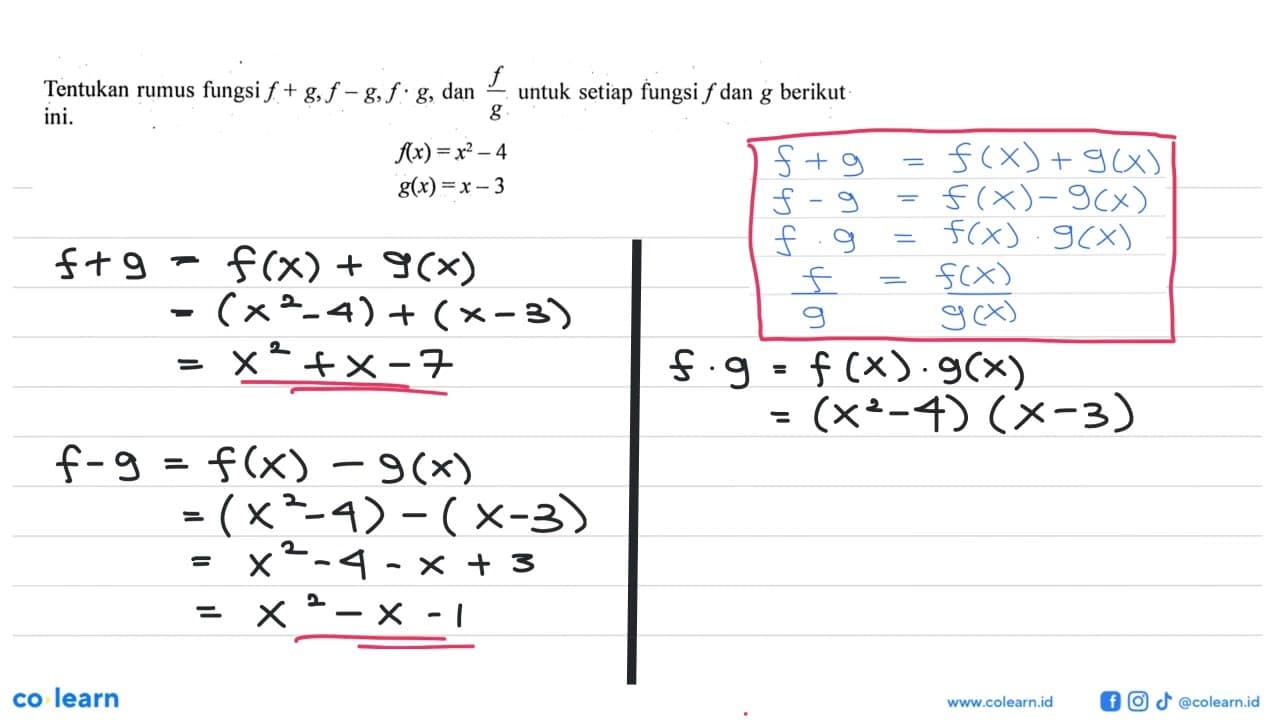 Tentukan rumus fungsi f + g, f – g, f · g, dan f/g untuk setiap fungsi f dan g berikut
ini.
f(x) = x² – 4
g(x) = x – 3
f + g = f(x) + g(x)
f - g = f(x) - g(x)
f . g = f(x) . g(x)
f/g = f(x)/g(x)
f + g = f(x) + g(x)
= (x² - 4) + (x - 3)
= x² + x - 7
f - g = f(x) - g(x)
= (x² - 4) - (x - 3)
= x² - 4 - x + 3
= x² - x - 1
f . g = f(x) . g(x)
= (x² - 4) (x - 3)
co learn
www.colearn.id
@colearn.id